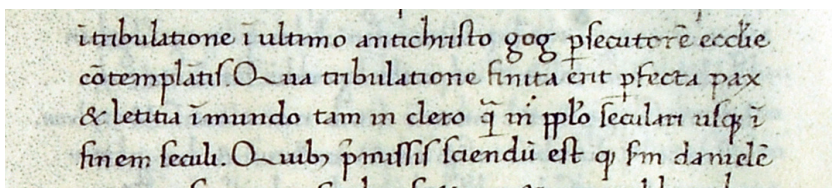 ī tribulatione ī ultimo antichristo gog ꝑsecutorē eccl̄ie
cōtemplātis. Qua tribulatione finita erit ꝑfecta pax
& letitia ī mundo tam in clero q̄̃ in ppl̄o seculari usqꝫ ī
finem seculi. Quibꝫ p̄missis sciendū est ꝙ s̄m danielē